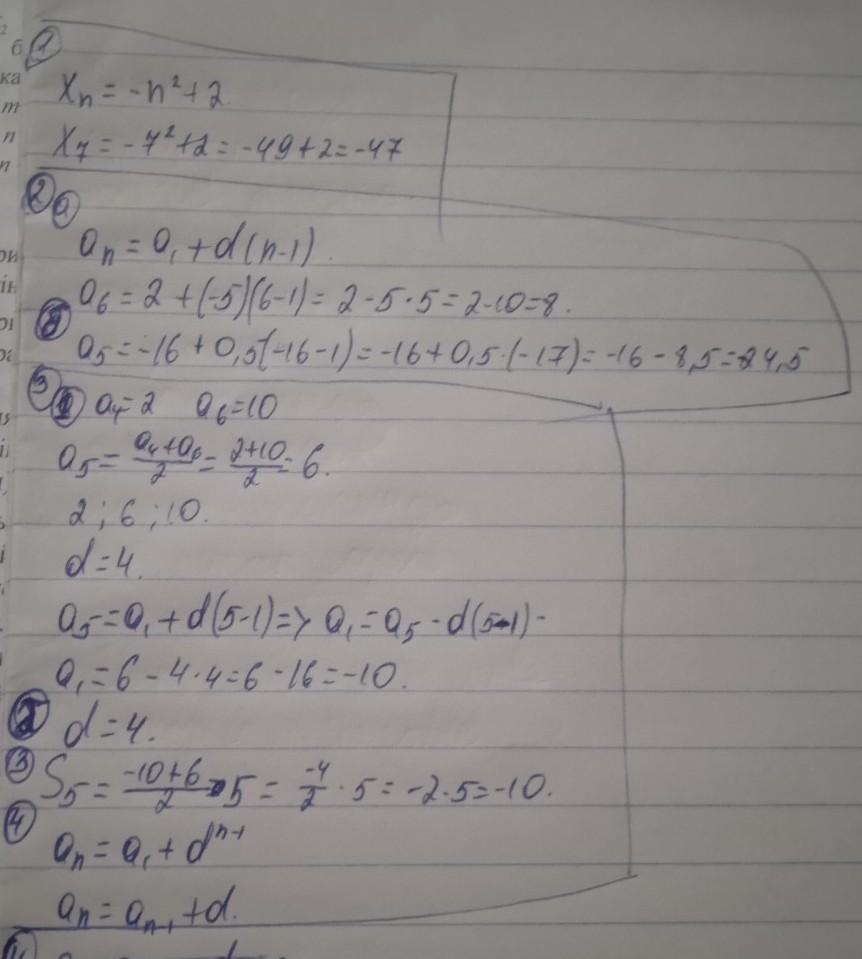 1
Xₙ = -n² + 2
X₇ = -7² + 2 = -49 + 2 = -47
2 a
aₙ = a₁ + d(n-1).
a₆ = 2 + (-5)(6-1) = 2 - 5 · 5 = 2 - 10 = 8.
a₅ = -16 + 0,5(-16-1) = -16 + 0,5 · (-17) = -16 - 8,5 = -24,5
3 1 a₄ = 2 a₆ = 10
a₅ = (a₄ + a₆)/2 = (2+10)/2 = 6.
2 ; 6 ; 10.
d = 4.
a₅ = a₁ + d(5-1) => a₁ = a₅ - d(5-1) -
a₁ = 6 - 4 · 4 = 6 - 16 = -10.
2 d = 4.
3 S₅ = (-10+6)/2 · 5 = -4/2 · 5 = -2 · 5 = -10.
4
aₙ = a₁ + dⁿ⁻¹
aₙ = aₙ₋₁ + d.